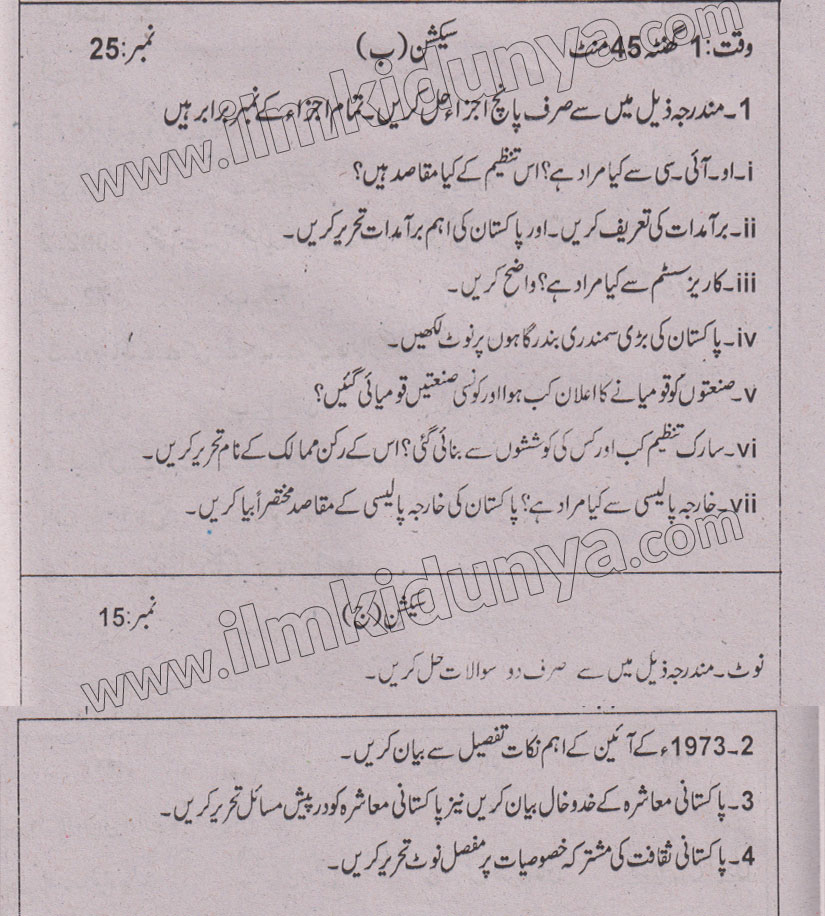 وقت: 1 گھنٹہ 45 منٹ سیکشن (ب) نمبر: 25
1۔ مندرجہ ذیل میں سے صرف پانچ اجزاء حل کریں۔ تمام اجزاء کے نمبر برابر ہیں
i۔ او۔ آئی۔ سی سے کیا مراد ہے؟ اس تنظیم کے کیا مقاصد ہیں؟
ii۔ برآمدات کی تعریف کریں۔ اور پاکستان کی اہم برآمدات تحریر کریں۔
iii۔ کاریز سسٹم سے کیا مراد ہے؟ واضح کریں۔
iv۔ پاکستان کی بڑی سمندری بندرگاہوں پر نوٹ لکھیں۔
v۔ صنعتوں کو قومیانے کا اعلان کب ہوا اور کونسی صنعتیں قومیائی گئیں؟
vi۔ سارک تنظیم کب اور کس کی کوششوں سے بنائی گئی؟ اس کے رکن ممالک کے نام تحریر کریں۔
vii۔ خارجہ پالیسی سے کیا مراد ہے؟ پاکستان کی خارجہ پالیسی کے مقاصد مختصراً بیا کریں۔
سیکشن (ج) نمبر: 15
نوٹ۔ مندرجہ ذیل میں سے صرف دو سوالات حل کریں۔
2۔ 1973ء کے آئین کے اہم نکات تفصیل سے بیان کریں۔
3۔ پاکستانی معاشرہ کے خدوخال بیان کریں نیز پاکستانی معاشرہ کو درپیش مسائل تحریر کریں۔
4۔ پاکستانی ثقافت کی مشترکہ خصوصیات پر مفصل نوٹ تحریر کریں۔
www.ilmkidunya.com
www.ilmkidunya.com